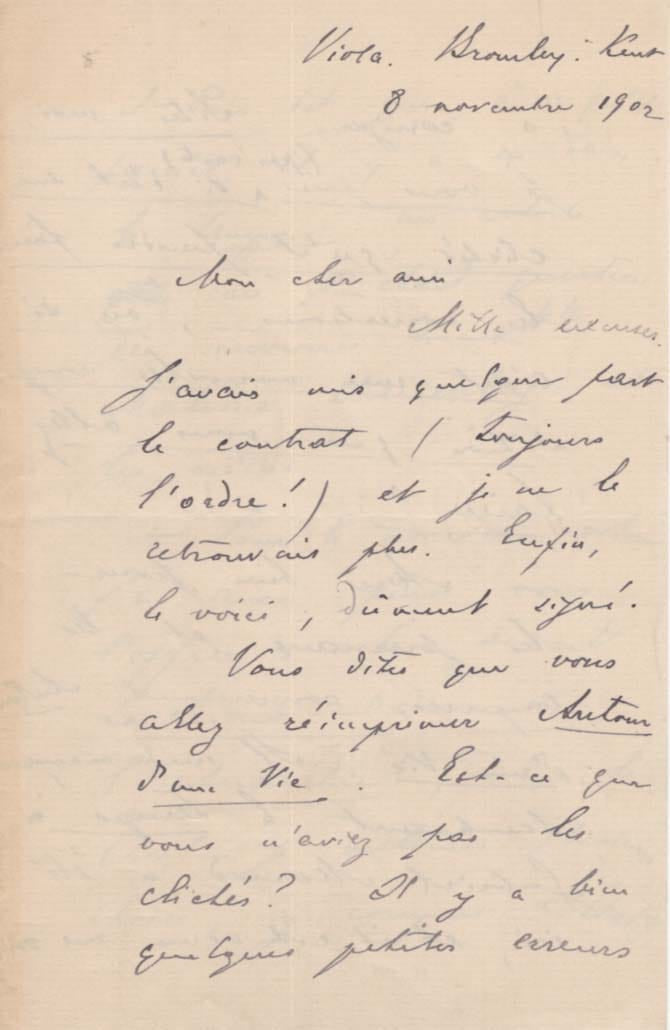 Viola. Bromley. Kent
8 novembre 1902
Mon cher ami
Mille excuses.
J'avais mis quelque part
le contrat (toujours
l'ordre!) et je ne le
retrouvais plus. Enfin,
le voici, dûment signé.
Vous dites que vous
allez réimprimer Autour
d'une Vie. Est-ce que
vous n'aviez pas les
clichés? Il y a bien
quelques petites erreurs